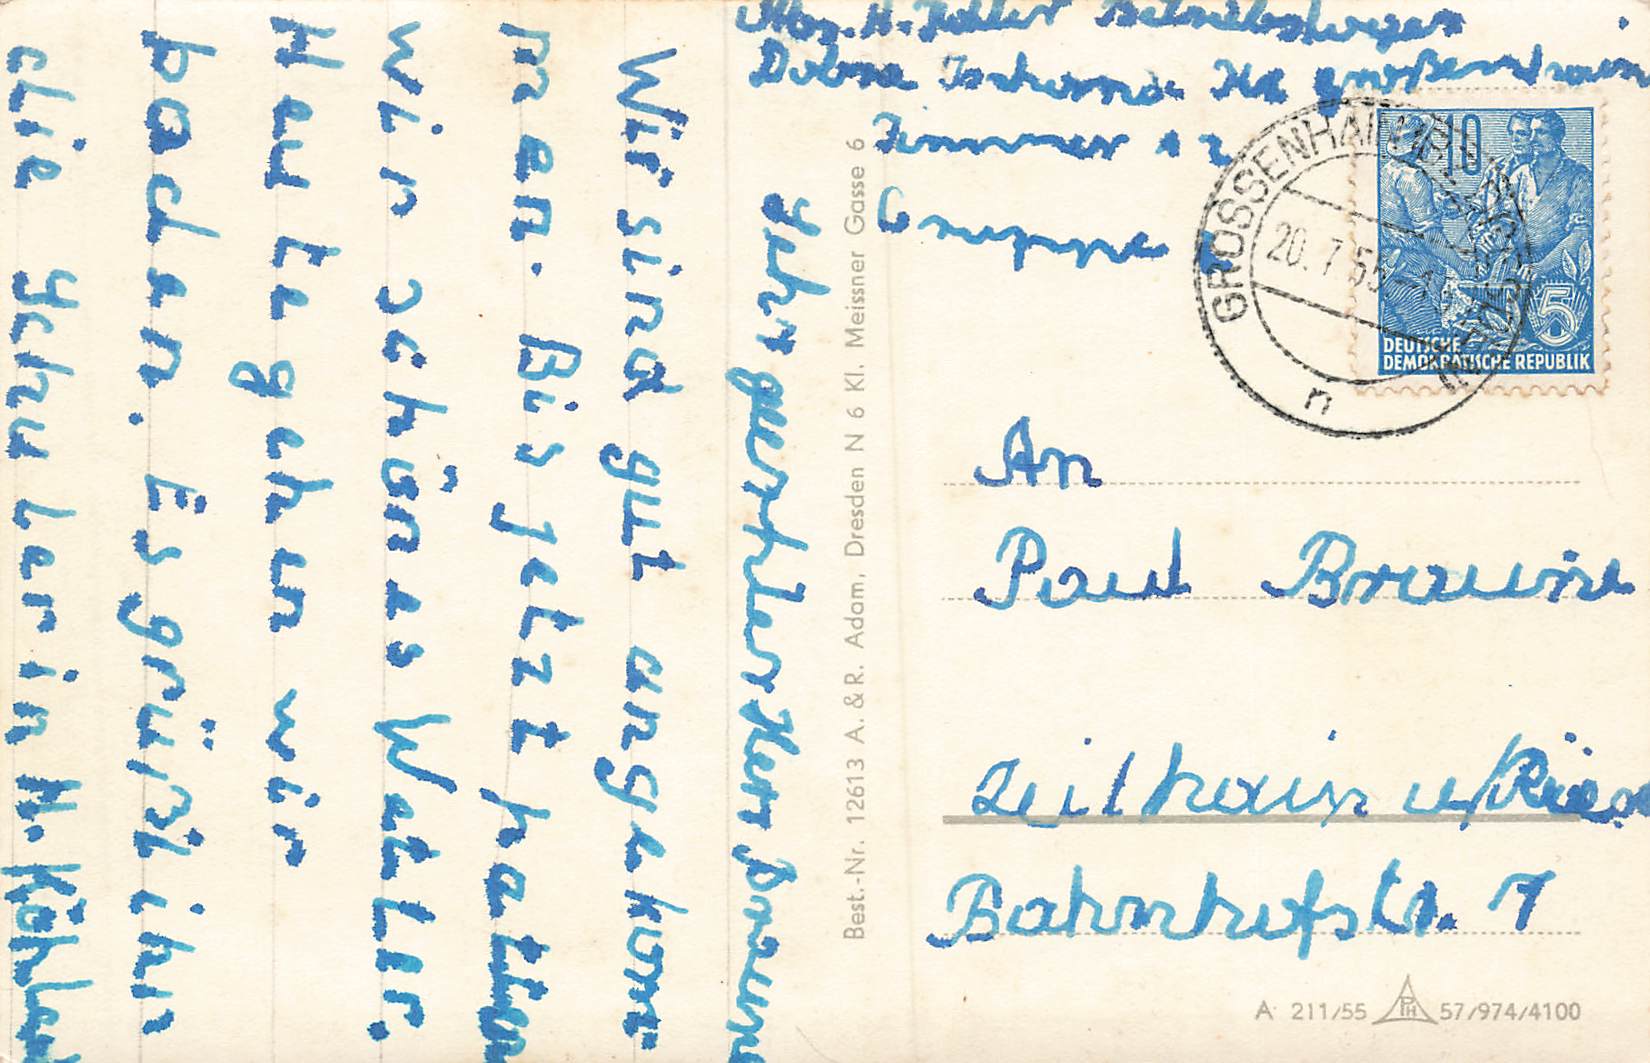 Zimmer 12
Gruppe
Sehr geehrter Herr Braune
Wir sind gut angekom
men. Bis jetzt hatten
wir schönes Wetter.
Heute gehen wir
baden. Es grüßt ihn
die Schülerin H. Köhler
Best.-Nr. 12613 A. & R. Adam, Dresden N 6 Kl. Meissner Gasse 6
GROSSENHAIN
20.7.55
n
10
5
DEUTSCHE
DEMOKRATISCHE REPUBLIK
An
Paul Braune
Zeithain ü/Riesa
Bahnhofstr. 7
A 211/55 PH 57/974/4100